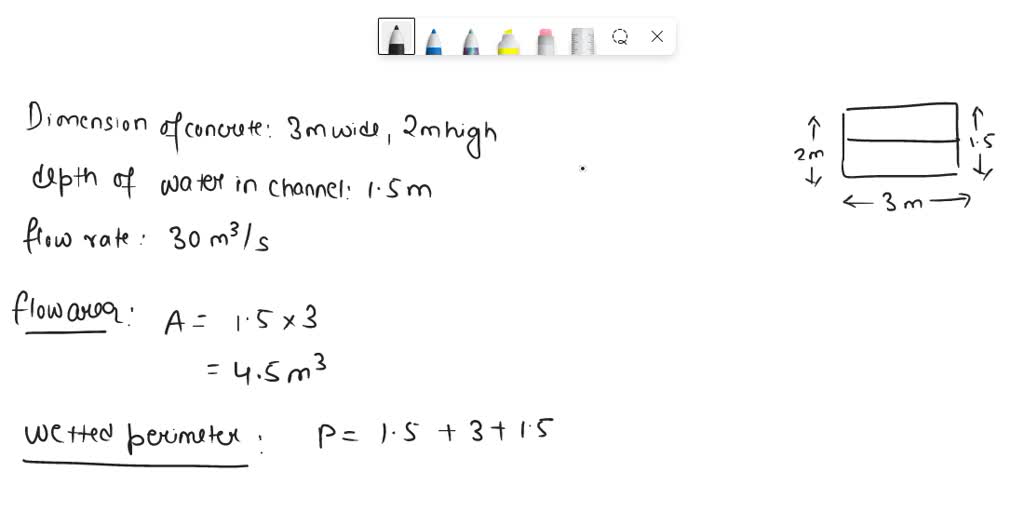 Dimension of concrete: 3m wide, 2m high
depth of water in channel: 1.5m
flow rate: 30 m³/s
flow area: A = 1.5 × 3
= 4.5 m³
wetted perimeter: P = 1.5 + 3 + 1.5
2m
1.5
3 m